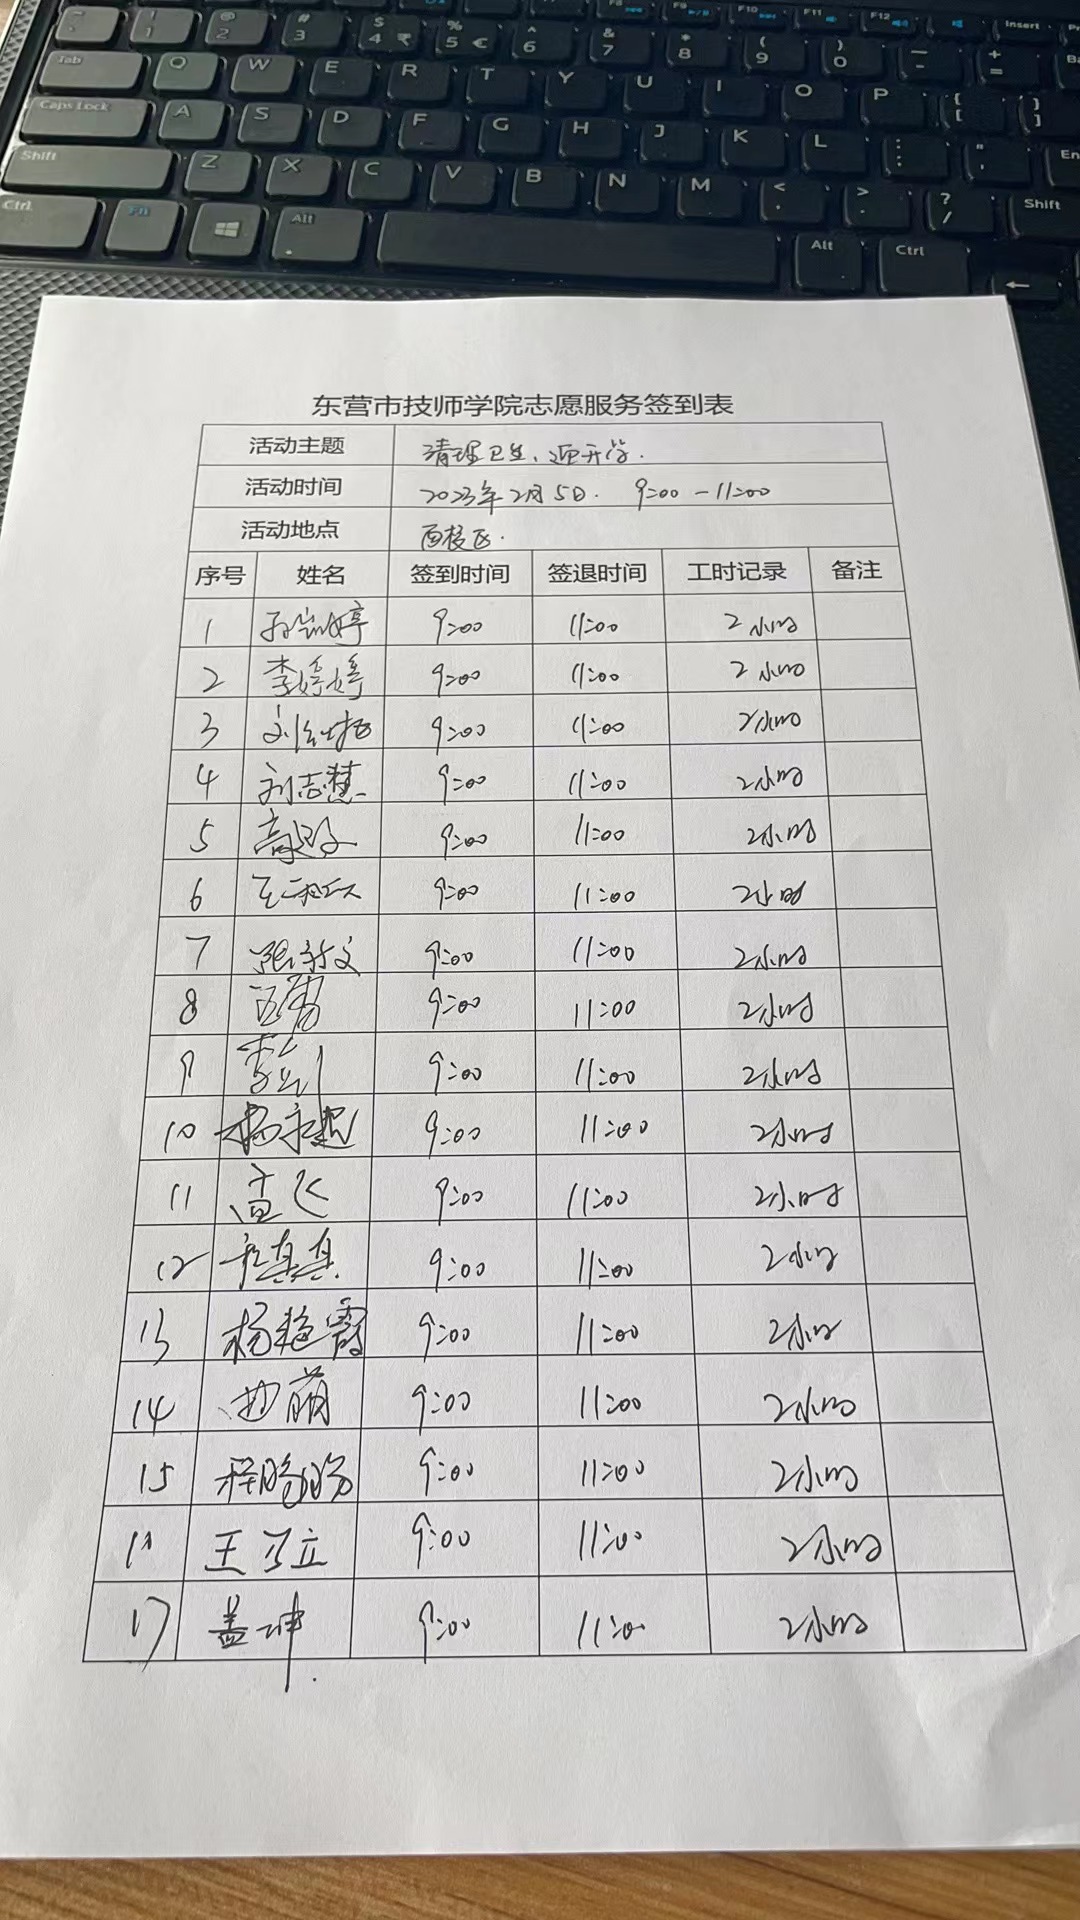 ~ ! @ # $ % ^ & * ( ) _ + Insert
` 1 2 3 4 ₹ 5 € 6 7 8 9 0 - =
F8 F9 F10 F11 F12
Tab Q W E R T Y U I O P { [ } ]
Caps Lock A S D F G H J K L : ; " ' En
Shift Z X C V B N M < , > . ? / Shift
Ctrl Fn Alt Alt Ctrl ←
东营市技师学院志愿服务签到表
活动主题 清理卫生、迎开学.
活动时间 2023年2月5日. 9:00-11:00
活动地点 西校区.
序号 姓名 签到时间 签退时间 工时记录 备注
1 9:00 11:00 2小时
2 李婷婷 9:00 11:00 2小时
3 9:00 11:00 2小时
4 刘志慧 9:00 11:00 2小时
5 9:00 11:00 2小时
6 9:00 11:00 2小时
7 张新文 9:00 11:00 2小时
8 9:00 11:00 2小时
9 9:00 11:00 2小时
10 杨永超 9:00 11:00 2小时
11 9:00 11:00 2小时
12 9:00 11:00 2小时
13 杨艳霞 9:00 11:00 2小时
14 曲萌 9:00 11:00 2小时
15 9:00 11:00 2小时
16 9:00 11:00 2小时
17 盖坤 9:00 11:00 2小时